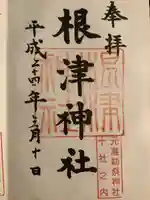 奉拝
根津神社
平成二十四年三月十日
元准勅祭神社
十社之内